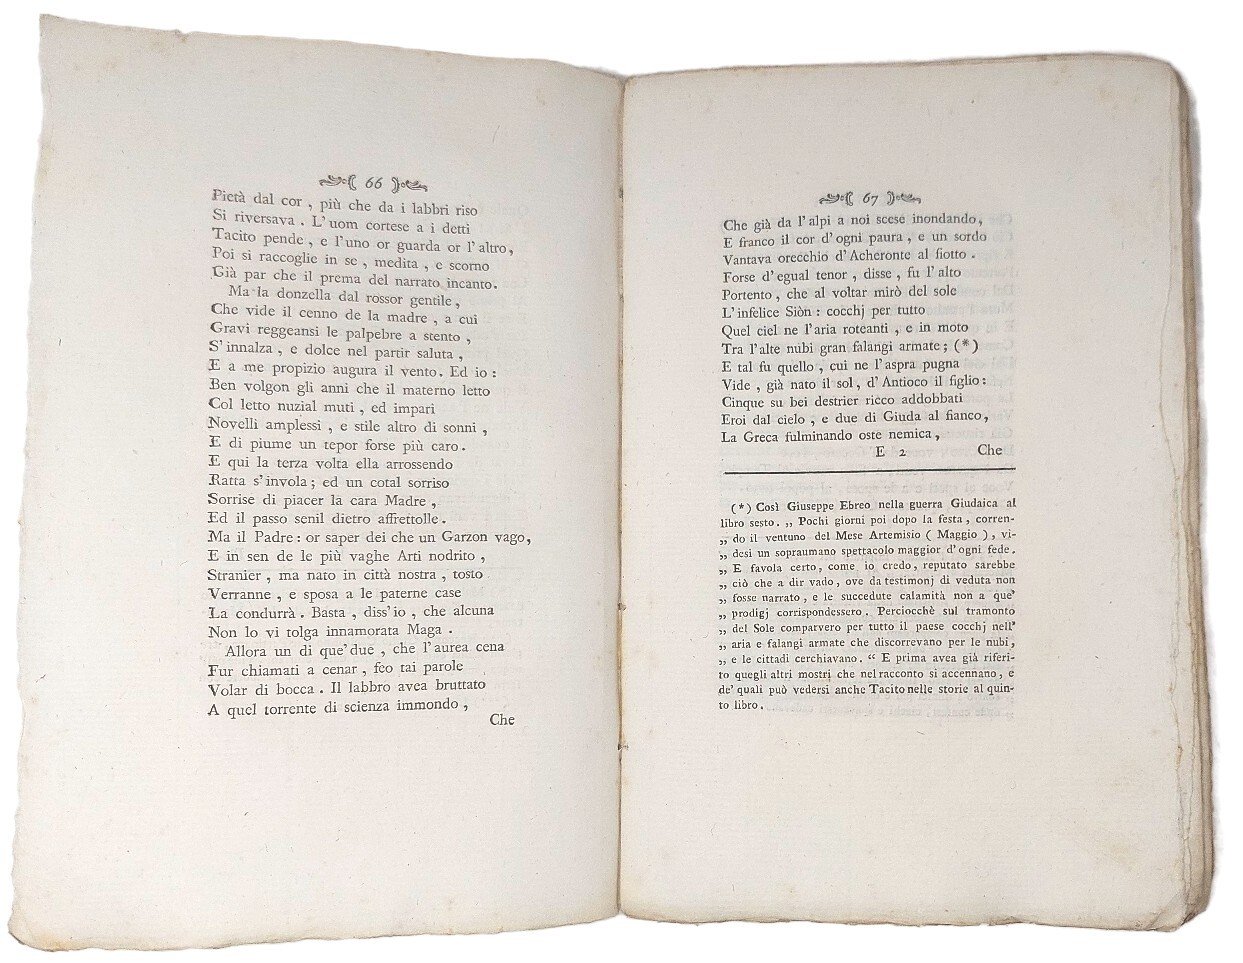 66
Pietà dal cor , più che da i labbri riso
Si riversava . L'uom cortese a i detti
Tacito pende , e l'uno or guarda or l'altro,
Poi si raccoglie in se , medita , e scorno
Già par che il prema del narrato incanto.
Ma la donzella dal rossor gentile ,
Che vide il cenno de la madre , a cui
Gravi reggeansi le palpebre a stento ,
S'innalza , e dolce nel partir saluta ,
E a me propizio augura il vento. Ed io :
Ben volgon gli anni che il materno letto
Col letto nuzial muti , ed impari
Novelli amplessi , e stile altro di sonni ,
E di piume un tepor forse più caro.
E qui la terza volta ella arrossendo
Ratta s'invola ; ed un cotal sorriso
Sorrise di piacer la cara Madre ,
Ed il passo senil dietro affrettolle.
Ma il Padre : or saper dei che un Garzon vago,
E in sen de le più vaghe Arti nodrito ,
Stranier , ma nato in città nostra , tosto
Verranne , e sposa a le paterne case
La condurrà . Basta , diss'io , che alcuna
Non lo vi tolga innamorata Maga .
Allora un di que'due , che l'aurea cena
Fur chiamati a cenar , feo tai parole
Volar di bocca . Il labbro avea bruttato
A quel torrente di scienza immondo ,
Che
67
Che già da l'alpi a noi scese inondando,
E franco il cor d'ogni paura , e un sordo
Vantava orecchio d'Acheronte al fiotto .
Forse d'egual tenor , disse , fu l'alto
Portento , che al voltar mirò del sole
L'infelice Siòn : cocchj per tutto
Quel ciel ne l'aria roteanti , e in moto
Tra l'alte nubi gran falangi armate ; (*)
E tal fu quello , cui ne l'aspra pugna
Vide , già nato il sol, d'Antioco il figlio :
Cinque su bei destrier ricco addobbati
Eroi dal cielo , e due di Giuda al fianco,
La Greca fulminando oste nemica,
E 2 Che
(*) Così Giuseppe Ebreo nella guerra Giudaica al
libro sesto. „ Pochi giorni poi dopo la festa , corren-
„ do il ventuno del Mese Artemisio ( Maggio ), vi-
„ desi un sopraumano spettacolo maggior d'ogni fede.
„ E favola certo, come io credo, reputato sarebbe
„ ciò che a dir vado, ove da testimonj di veduta non
„ fosse narrato, e le succedute calamità non a que'
„ prodigj corrispondessero. Perciocchè sul tramonto
„ del Sole comparvero per tutto il paese cocchj nell'
„ aria e falangi armate che discorrevano per le nubi,
„ e le cittadi cerchiavano. “ E prima avea già riferi-
to quegli altri mostri che nel racconto si accennano, e
de' quali può vedersi anche Tacito nelle storie al quin-
to libro.